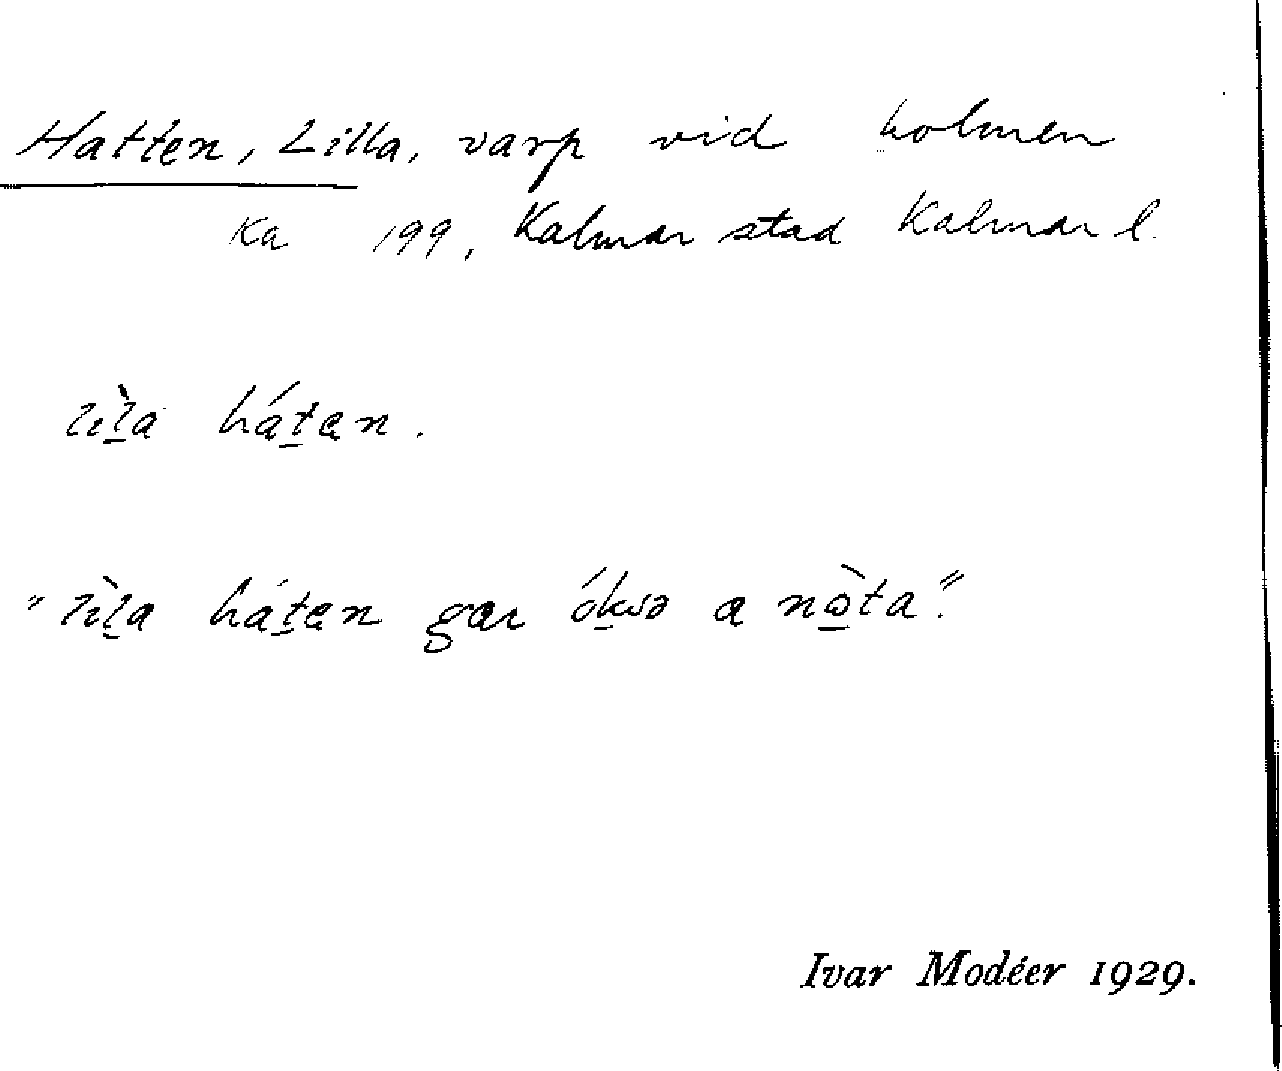 Hatten, Lilla, varp vid holmen
Ka 199, Kalmar stad Kalmar l.
lìl̲a hát̲ən.
"lìl̲a hát̲ən gɑr ók̲sə ɑ nò̲ta".
Ivar Modéer 1929.